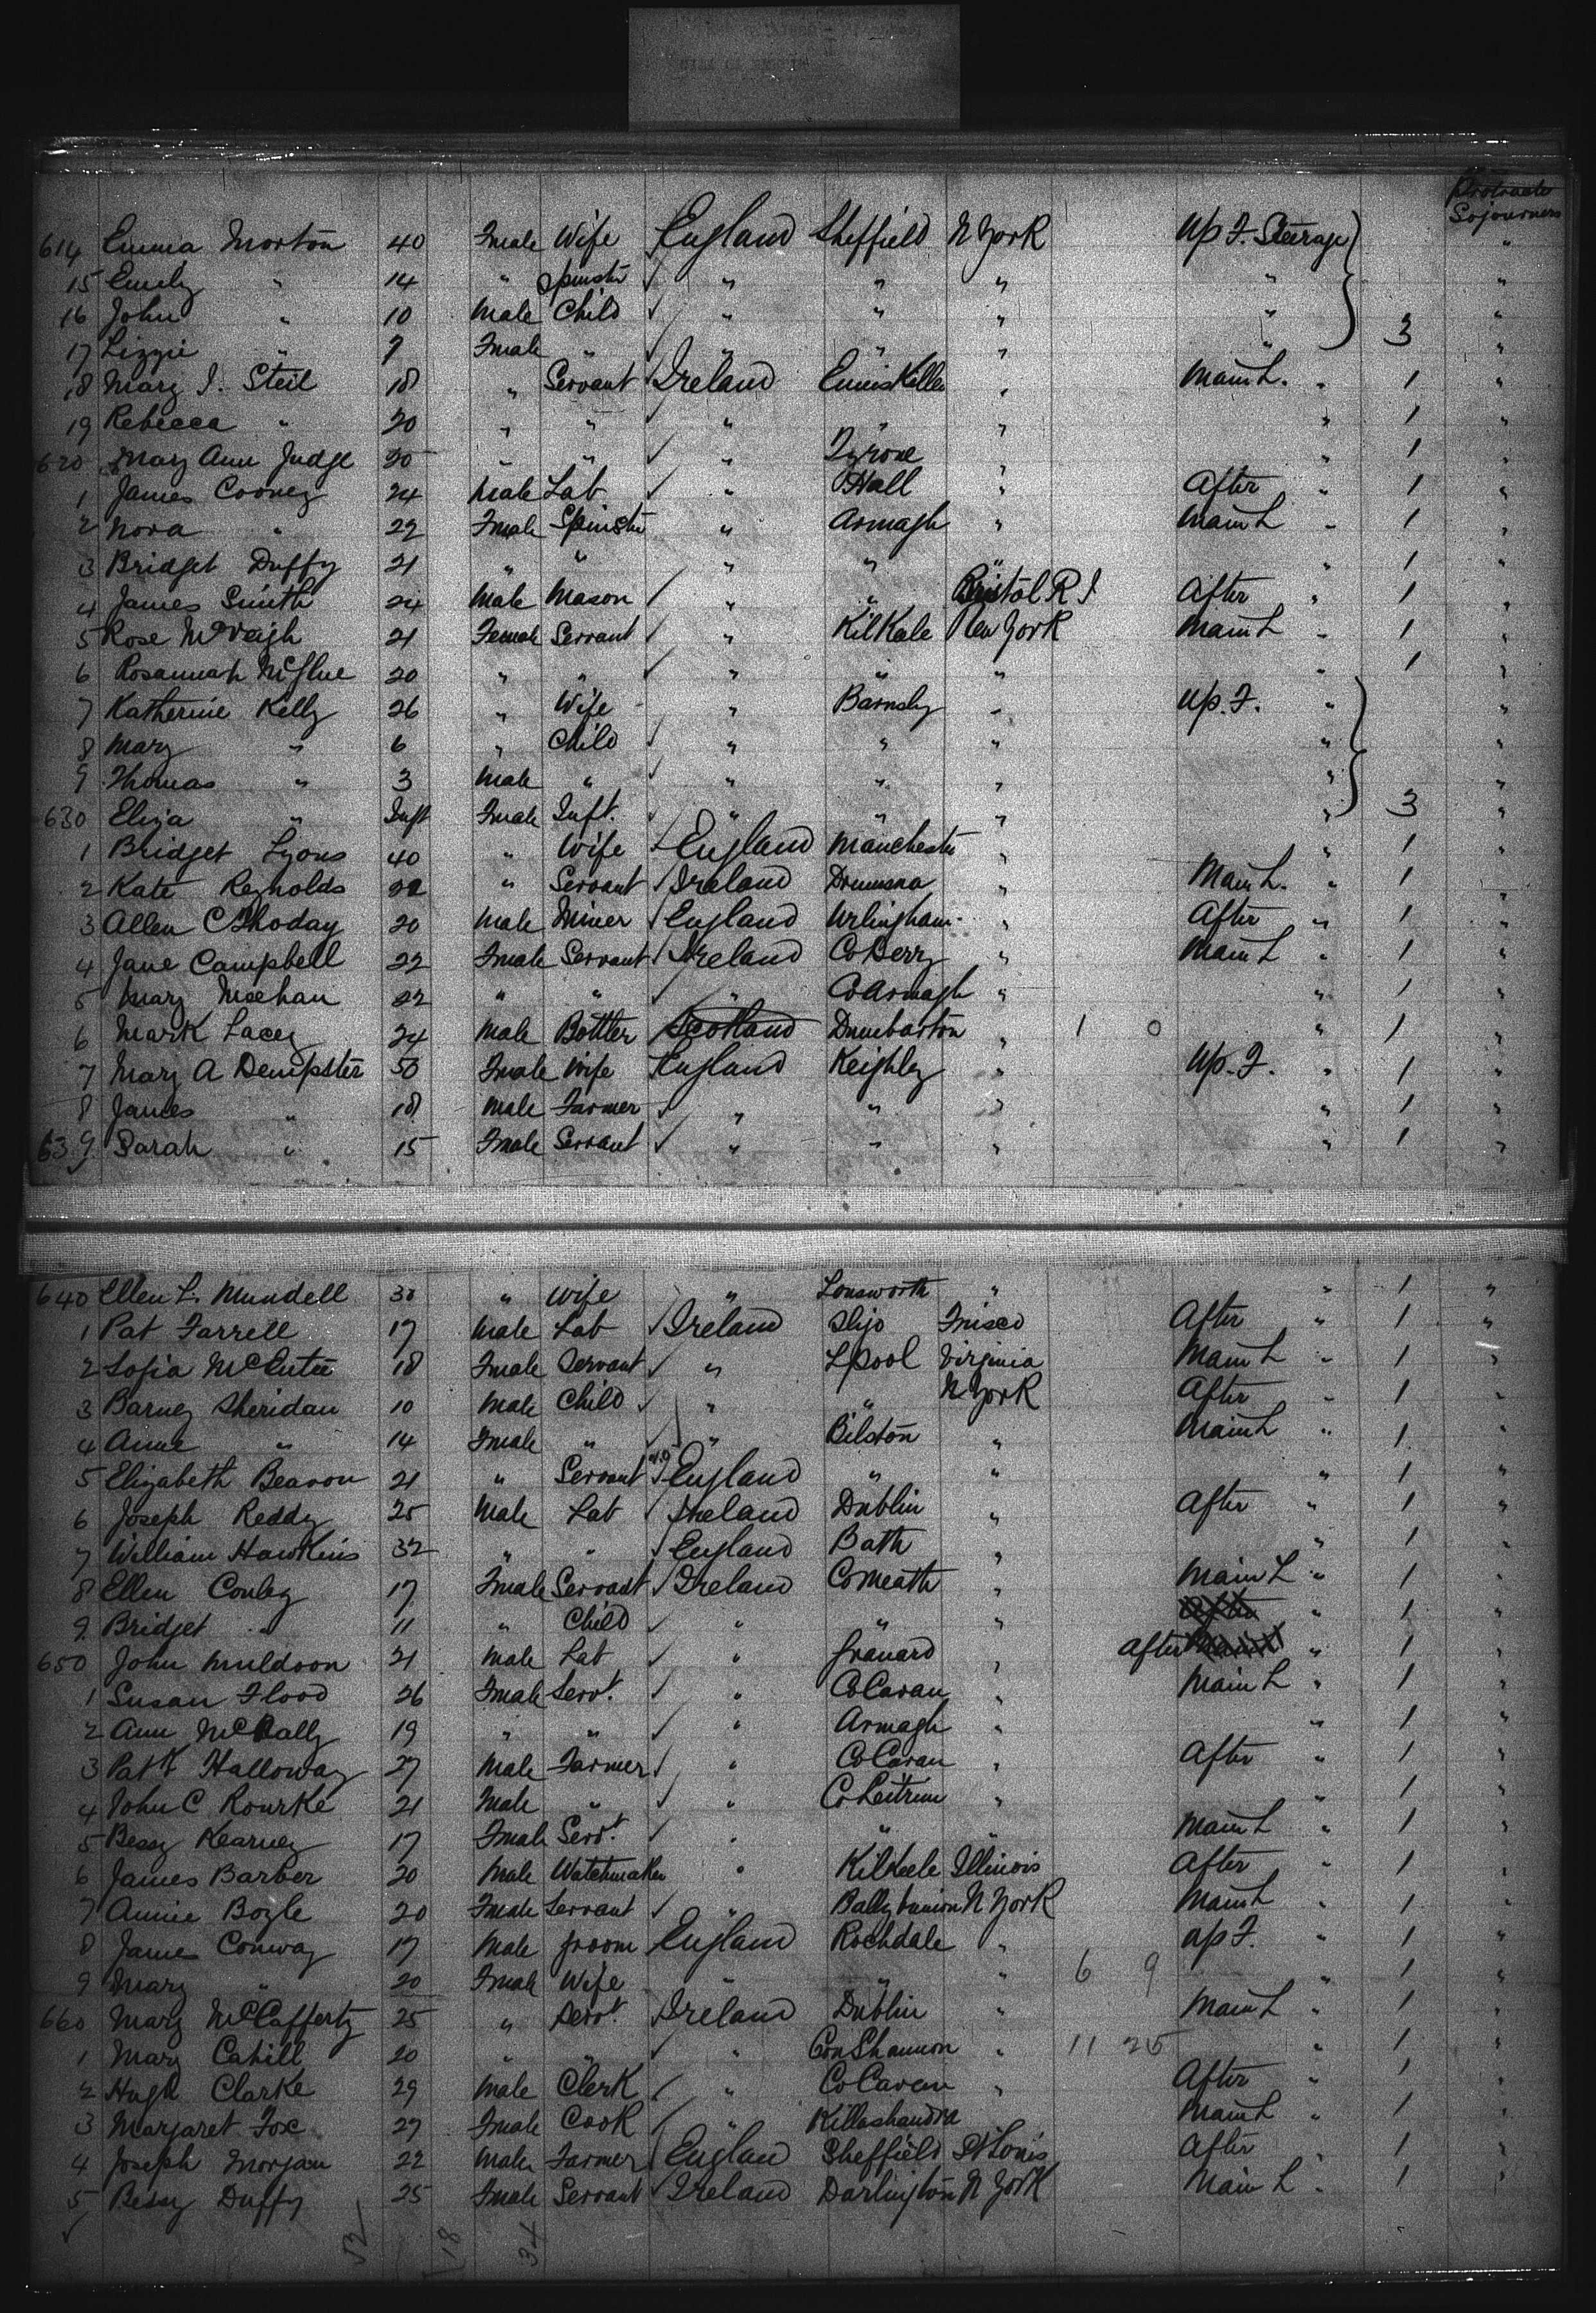 Protracted
Sojourners
614 Emma Morton 40 Fmale Wife England Sheffield N York Up F. Steerage "
15 Emily " 14 " Spinster " " " " "
16 John " 10 Male Child " " " " "
17 Lizzie " 7 Fmale " " " " " 3 "
18 Mary J. Steil 18 " Servant Ireland Enniskillen " Main L. " 1 "
19 Rebecca " 20 " " " " " " 1 "
620 Mary Ann Judge 20 " " " Tyrone " " 1 "
1 James Cooney 24 Male Lab " Hall " After " 1 "
2 Nora " 22 Fmale Spinster " Armagh " Main L " 1 "
3 Bridget Duffy 21 " " " " " " 1 "
4 James Smith 24 Male Mason " " Bristol R I After " 1 "
5 Rose McVeigh 21 Female Servant " Kilkale New York Main L " 1 "
6 Rosannah McGlue 20 " " " " " " 1 "
7 Katherine Kelly 26 " Wife " Barnsly " Up. F. " "
8 Mary " 6 " Child " " " " "
9 Thomas " 3 Male " " " " " "
630 Eliza " Inft Fmale Inft. " " " " 3 "
1 Bridget Lyons 40 " Wife England Manchester " " 1 "
2 Kate Reynolds 22 " Servant Ireland Drumsna " Main L. " 1 "
3 Allen C Rhoday 20 Male Miner England Urlingham " After " 1 "
4 Jane Campbell 22 Fmale Servant Ireland Co Derry " Main L " 1 "
5 Mary Meehan 22 " " " Co Armagh " " 1 "
6 Mark Lacey 24 Male Bottler Scotland Dumbarton " 1 0 " 1 "
7 Mary A Dempster 50 Fmale Wife England Keighley " Up. F. " 1 "
8 James " 18 Male Farmer " " " " 1 "
639 Sarah " 15 Fmale Servant " " " " 1 "
640 Ellen L. Mundell 30 " Wife " Lonsworth " " 1 "
1 Pat Farrell 17 Male Lab Ireland Sligo Frisco After " 1 "
2 Sofia McEntee 18 Fmale Servant " Lpool Virginia Main L " 1 "
3 Barney Sheridan 10 Male Child " " N York After " 1 "
4 Anne " 14 Fmale " " Bilston " Main L " 1 "
5 Elizabeth Beavon 21 " Servant England " " " 1 "
6 Joseph Reddy 25 Male Lab Ireland Dublin " After " 1 "
7 William Hawkins 32 " " England Bath " " 1 "
8 Ellen Conley 17 Fmale Servant Ireland Co Meath " Main L " 1 "
9 Bridget " 11 " Child " " " After " 1 "
650 John Muldoon 21 Male Lab " Granard " After " 1 "
1 Susan Flood 26 Fmale Servt. " Co Cavan " Main L " 1 "
2 Ann McNally 19 " " " Armagh " " 1 "
3 Patk Halloway 27 Male Farmer " Co Cavan " After " 1 "
4 John C Rourke 21 Male " " Co Leitrim " " 1 "
5 Bessy Kearney 17 Fmale Servt. " " " Main L " 1 "
6 James Barber 20 Male Watchmaker " Kilkeele Illinois After " 1 "
7 Annie Boyle 20 Fmale Servant " Ballybunion N York Main L " 1 "
8 James Conway 17 Male Groom England Rochdale " Up F. " 1 "
9 Mary " 20 Fmale Wife " " " 6 9 " 1 "
660 Mary McCafferty 25 " Servt. Ireland Dublin " Main L " 1 "
1 Mary Cahill 20 " " " Con Shannon " 11 25 " 1 "
2 Hugh Clarke 29 Male Clerk " Co Cavan " After " 1 "
3 Margaret Fox 27 Fmale Cook " Killashandra Main L " 1 "
4 Joseph Morgan 22 Male Farmer Englan Sheffield St Louis After " 1 "
5 Bessy Duffy 25 Fmale Servant Ireland Darlington N York Main L " 1 "
52 18 34